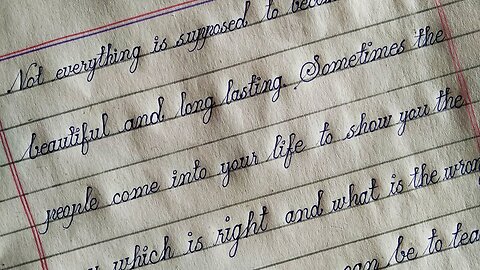 Not everything is supposed to
beautiful and long lasting. Sometimes the
people come into your life to show you the
which is right and what is the wrong
be to